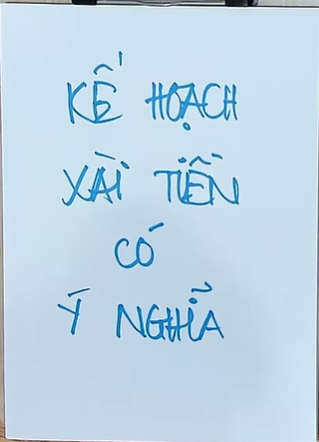 KẾ HOẠCH
XÀI TIỀN
CÓ
Ý NGHĨA